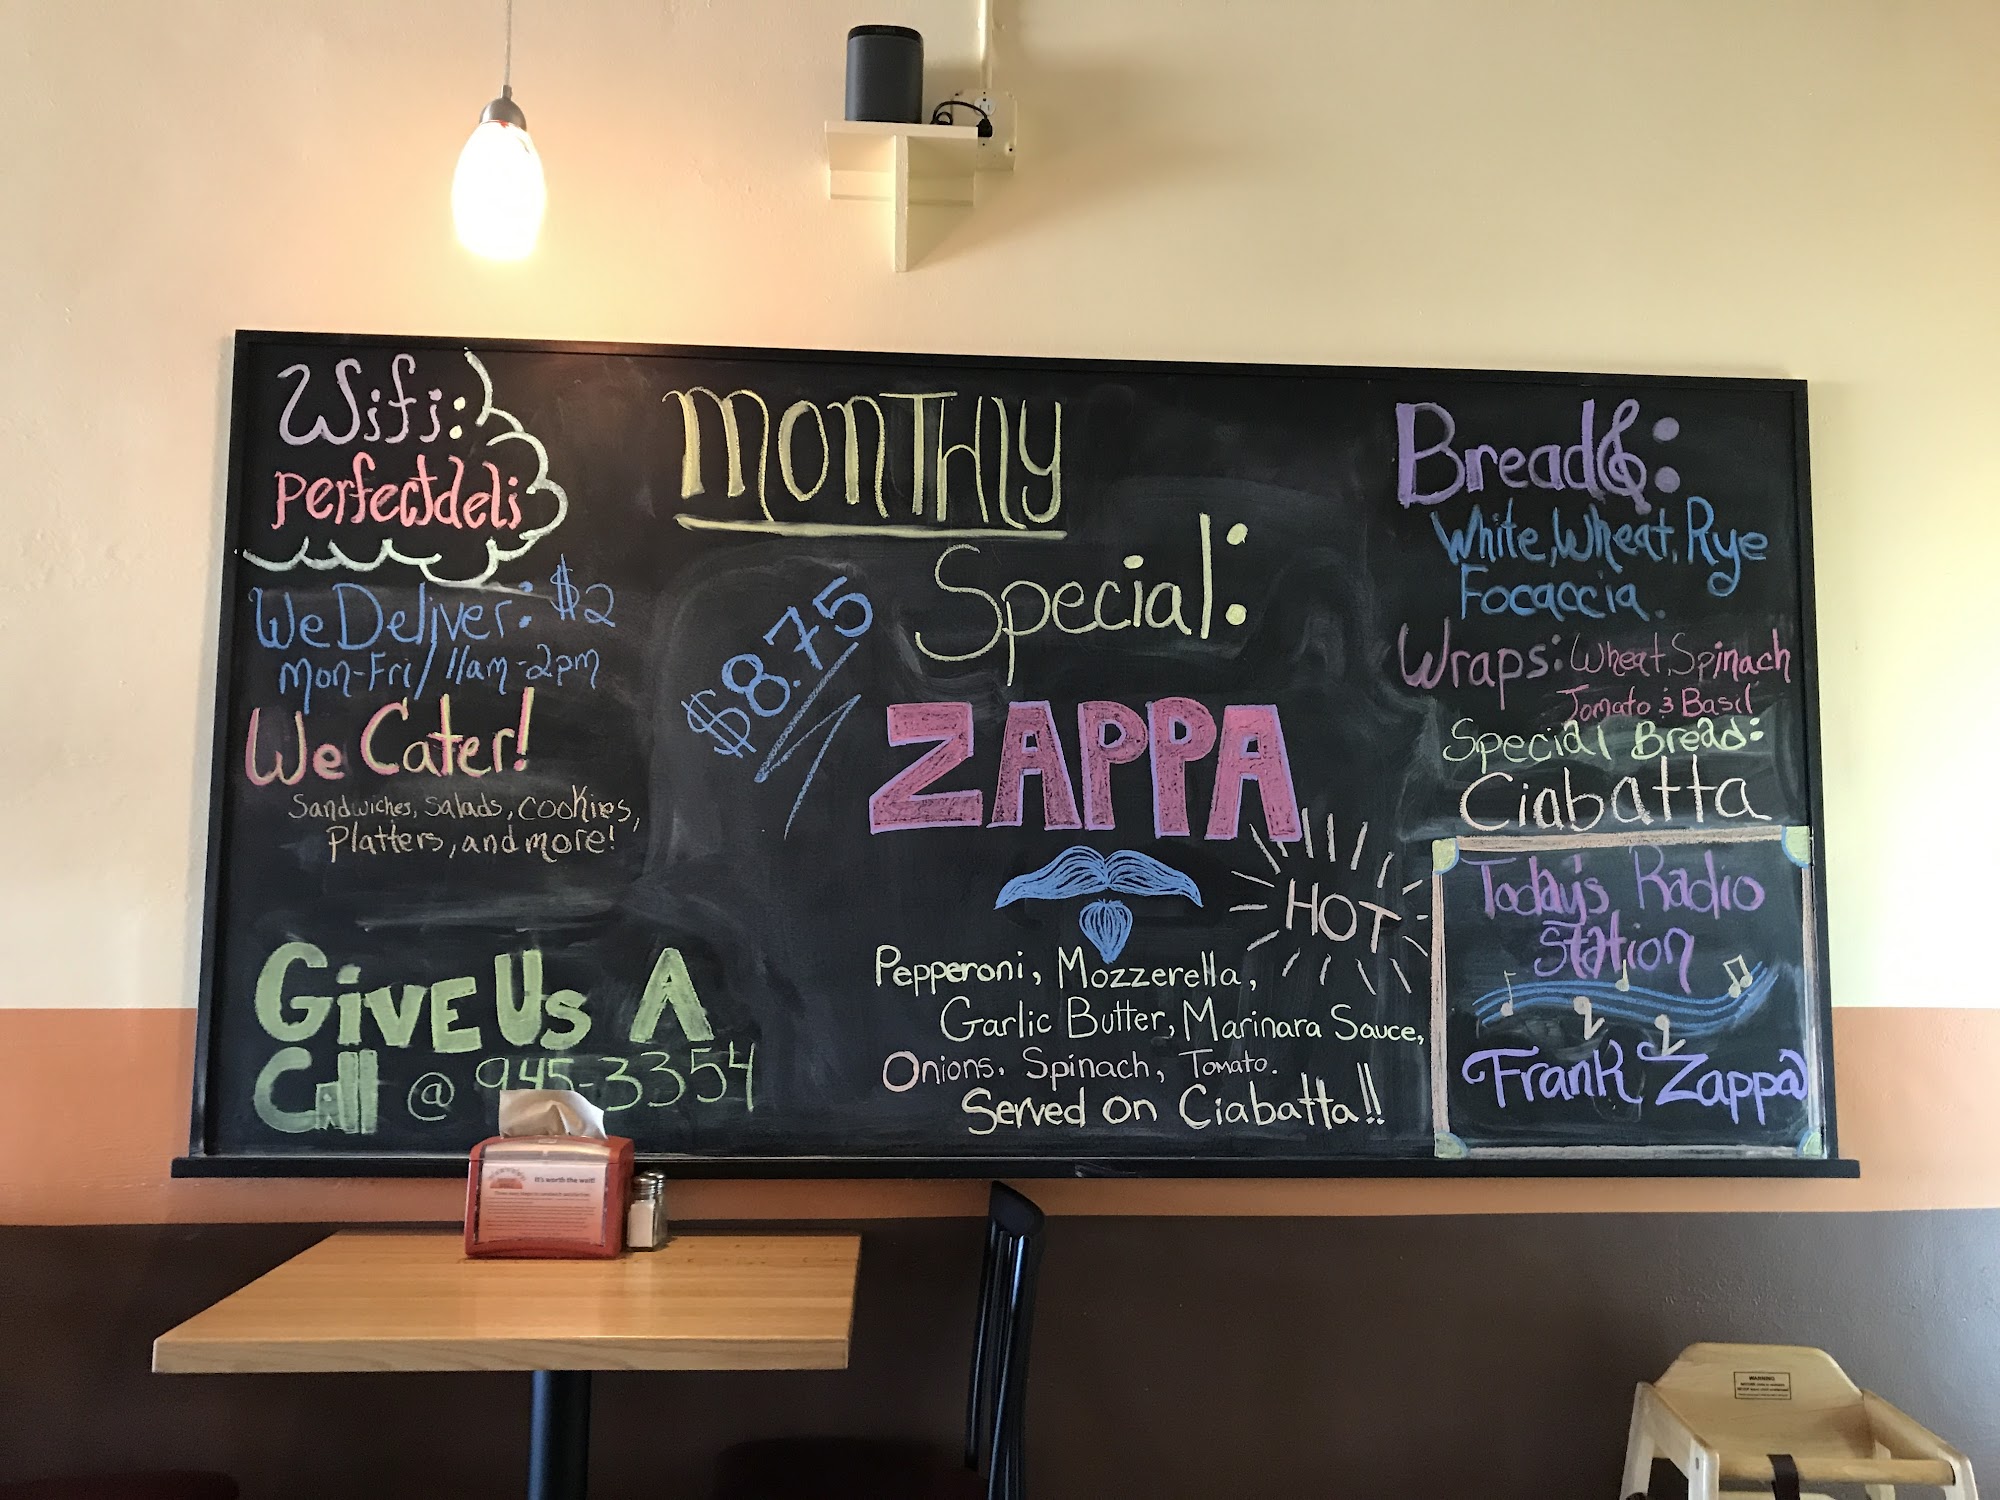 Wifi:
perfectdeli
We Deliver: $2
Mon-Fri/11am-2pm
We Cater!
Sandwiches, Salads, Cookies,
Platters, and more!
Give Us A
Call @ 945-3354
MONTHLY
Special:
$8.75
ZAPPA
HOT
Pepperoni, Mozzerella,
Garlic Butter, Marinara Sauce,
Onions, Spinach, Tomato.
Served on Ciabatta!!
Breads:
White, Wheat, Rye
Focaccia.
Wraps: Wheat, Spinach
Tomato & Basil
Special Bread:
Ciabatta
Today's Radio
Station
Frank Zappa
It's worth the wait!
WARNING